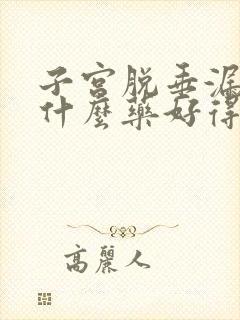 子宮脱垂漏
什麼藥好得
高麗人